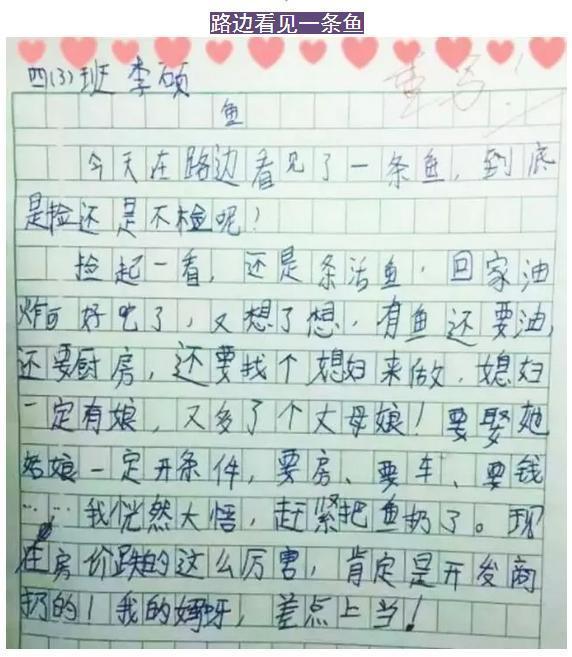 路边看见一条鱼
四(3)班 李硕
重写!
鱼
今天在路边看见了一条鱼，到底
是捡还是不检呢！
捡起一看，还是条活鱼，回家油
炸可好吃了，又想了想，有鱼还要油，
还要厨房，还要找个媳妇来做，媳妇
一定有娘，又多了个丈母娘！要娶她
姑娘一定开条件，要房、要车、要钱
……我恍然大悟，赶紧把鱼扔了。现
在房价跌的这么厉害，肯定是开发商
扔的！我的妈呀，差点上当！